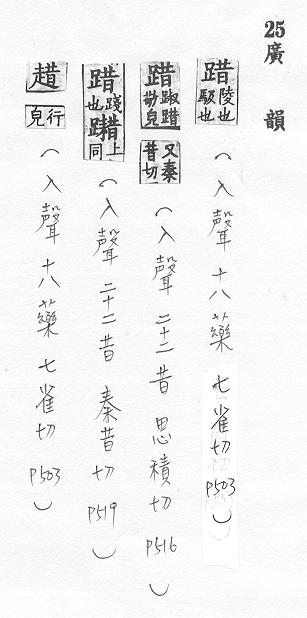 25廣韻
踖陵也駇也（入聲 十八藥 七雀切 P503）
踖踧踖敬皃又秦昔切（入聲 二十二昔 思積切 P516）
踖踐也躤上同（入聲 二十二昔 秦昔切 P519）
趞行皃（入聲 十八藥 七雀切 P503）